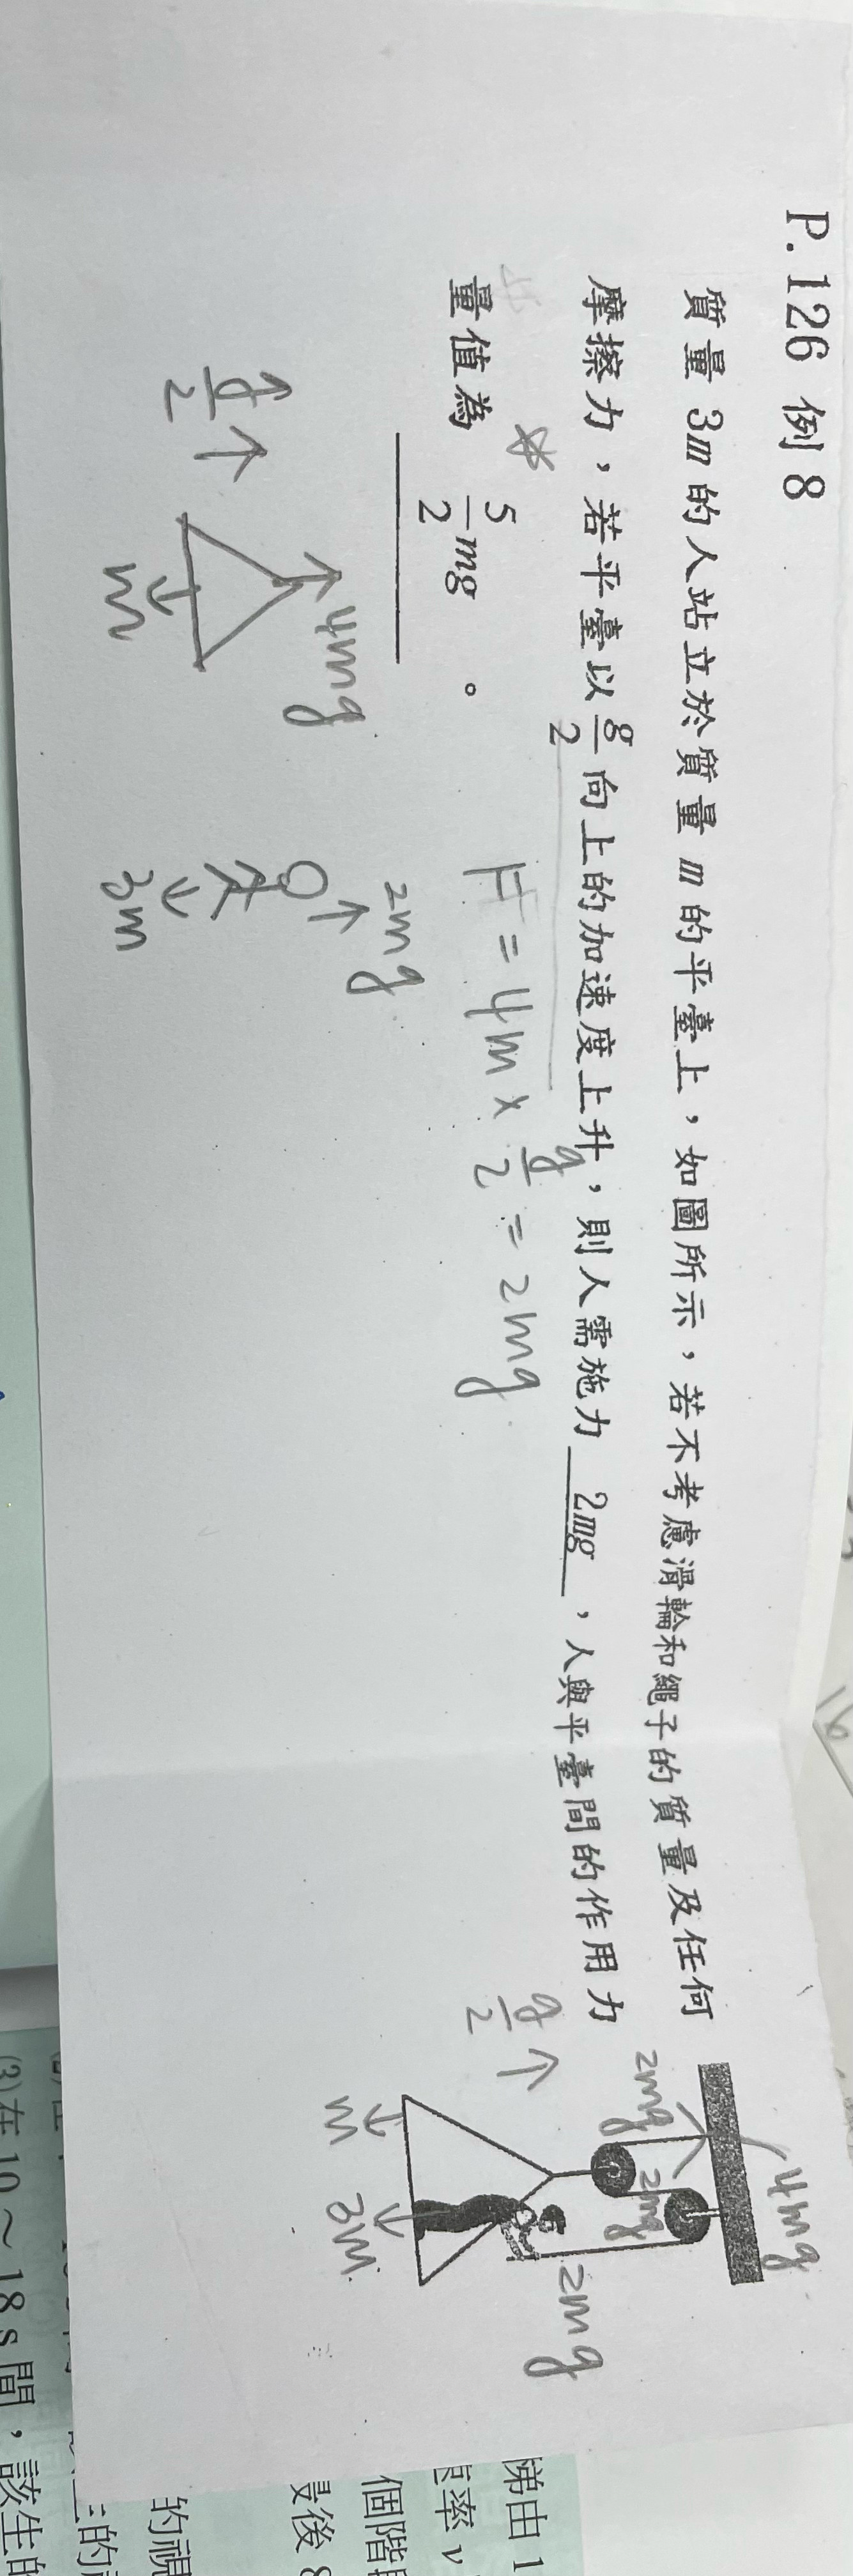 P.126 例8
質量 3m 的人站立於質量 m 的平臺上，如圖所示，若不考慮滑輪和繩子的質量及任何
摩擦力，若平臺以 g/2 向上的加速度上升，則人需施力 2mg ，人與平臺間的作用力
量值為 5/2 mg 。
F = 4m × g/2 = 2mg
4mg
g/2 ↑
m
2mg
3m
4mg
2mg
2mg
2mg
g/2 ↑
m
3m
梯由 1
率 v
個階
最後 8
的視
(3)在 10～18 s 間，該生的